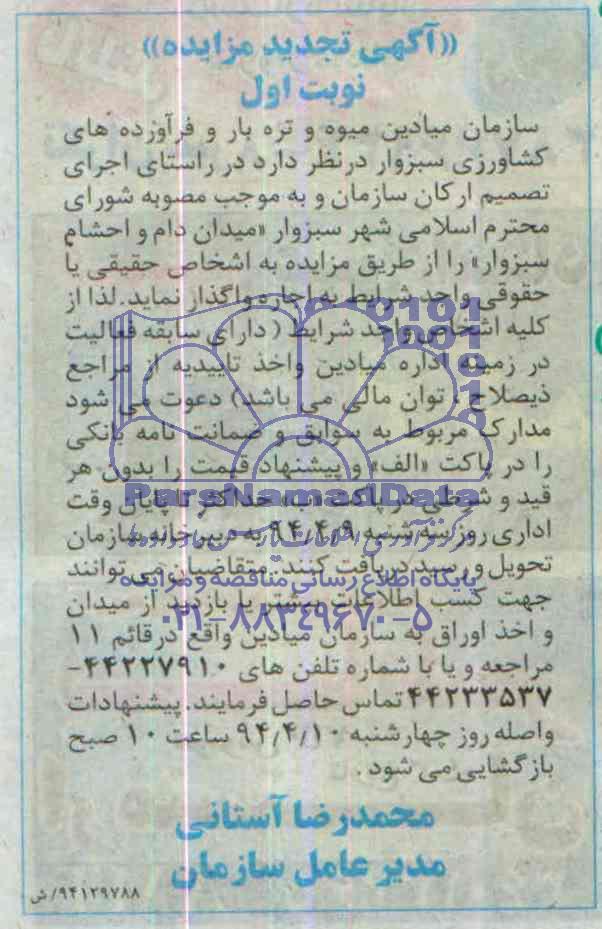 «آگهی تجدید مزایده»
نوبت اول
سازمان میادین میوه و تره بار و فرآورده های
کشاورزی سبزوار درنظر دارد در راستای اجرای
تصمیم ارکان سازمان و به موجب مصوبه شورای
محترم اسلامی شهر سبزوار «میدان دام و احشام
سبزوار» را از طریق مزایده به اشخاص حقیقی یا
حقوقی واجد شرایط به اجاره واگذار نماید. لذا از
کلیه اشخاص واجد شرایط ( دارای سابقه فعالیت
در زمینه اداره میادین واخذ تاییدیه از مراجع
ذیصلاح ، توان مالی می باشد) دعوت می شود
مدارک مربوط به سوابق و ضمانت نامه بانکی
را در پاکت «الف» و پیشنهاد قیمت را بدون هر
قید و شرطی در پاکت «ب» حداکثر تا پایان وقت
ParsNamadData
اداری روز سه شنبه ۹۴/۴/۹ به دبیرخانه سازمان
تحویل و رسید دریافت کنند. متقاضیان می توانند
پایگاه اطلاع رسانی مناقصه و مزایده
جهت کسب اطلاعات بیشتر یا بازدید از میدان
۰۲۱-۸۸۳۴۹۶۷۰-۵
و اخذ اوراق به سازمان میادین واقع درقائم ۱۱
مراجعه و یا با شماره تلفن های ۴۴۲۲۷۹۱۰-
۴۴۲۳۳۵۳۷ تماس حاصل فرمایند. پیشنهادات
واصله روز چهارشنبه ۹۴/۴/۱۰ ساعت ۱۰ صبح
بازگشایی می شود .
محمدرضا آستانی
مدیر عامل سازمان
۹۴۱۲۹۷۸۸/ش